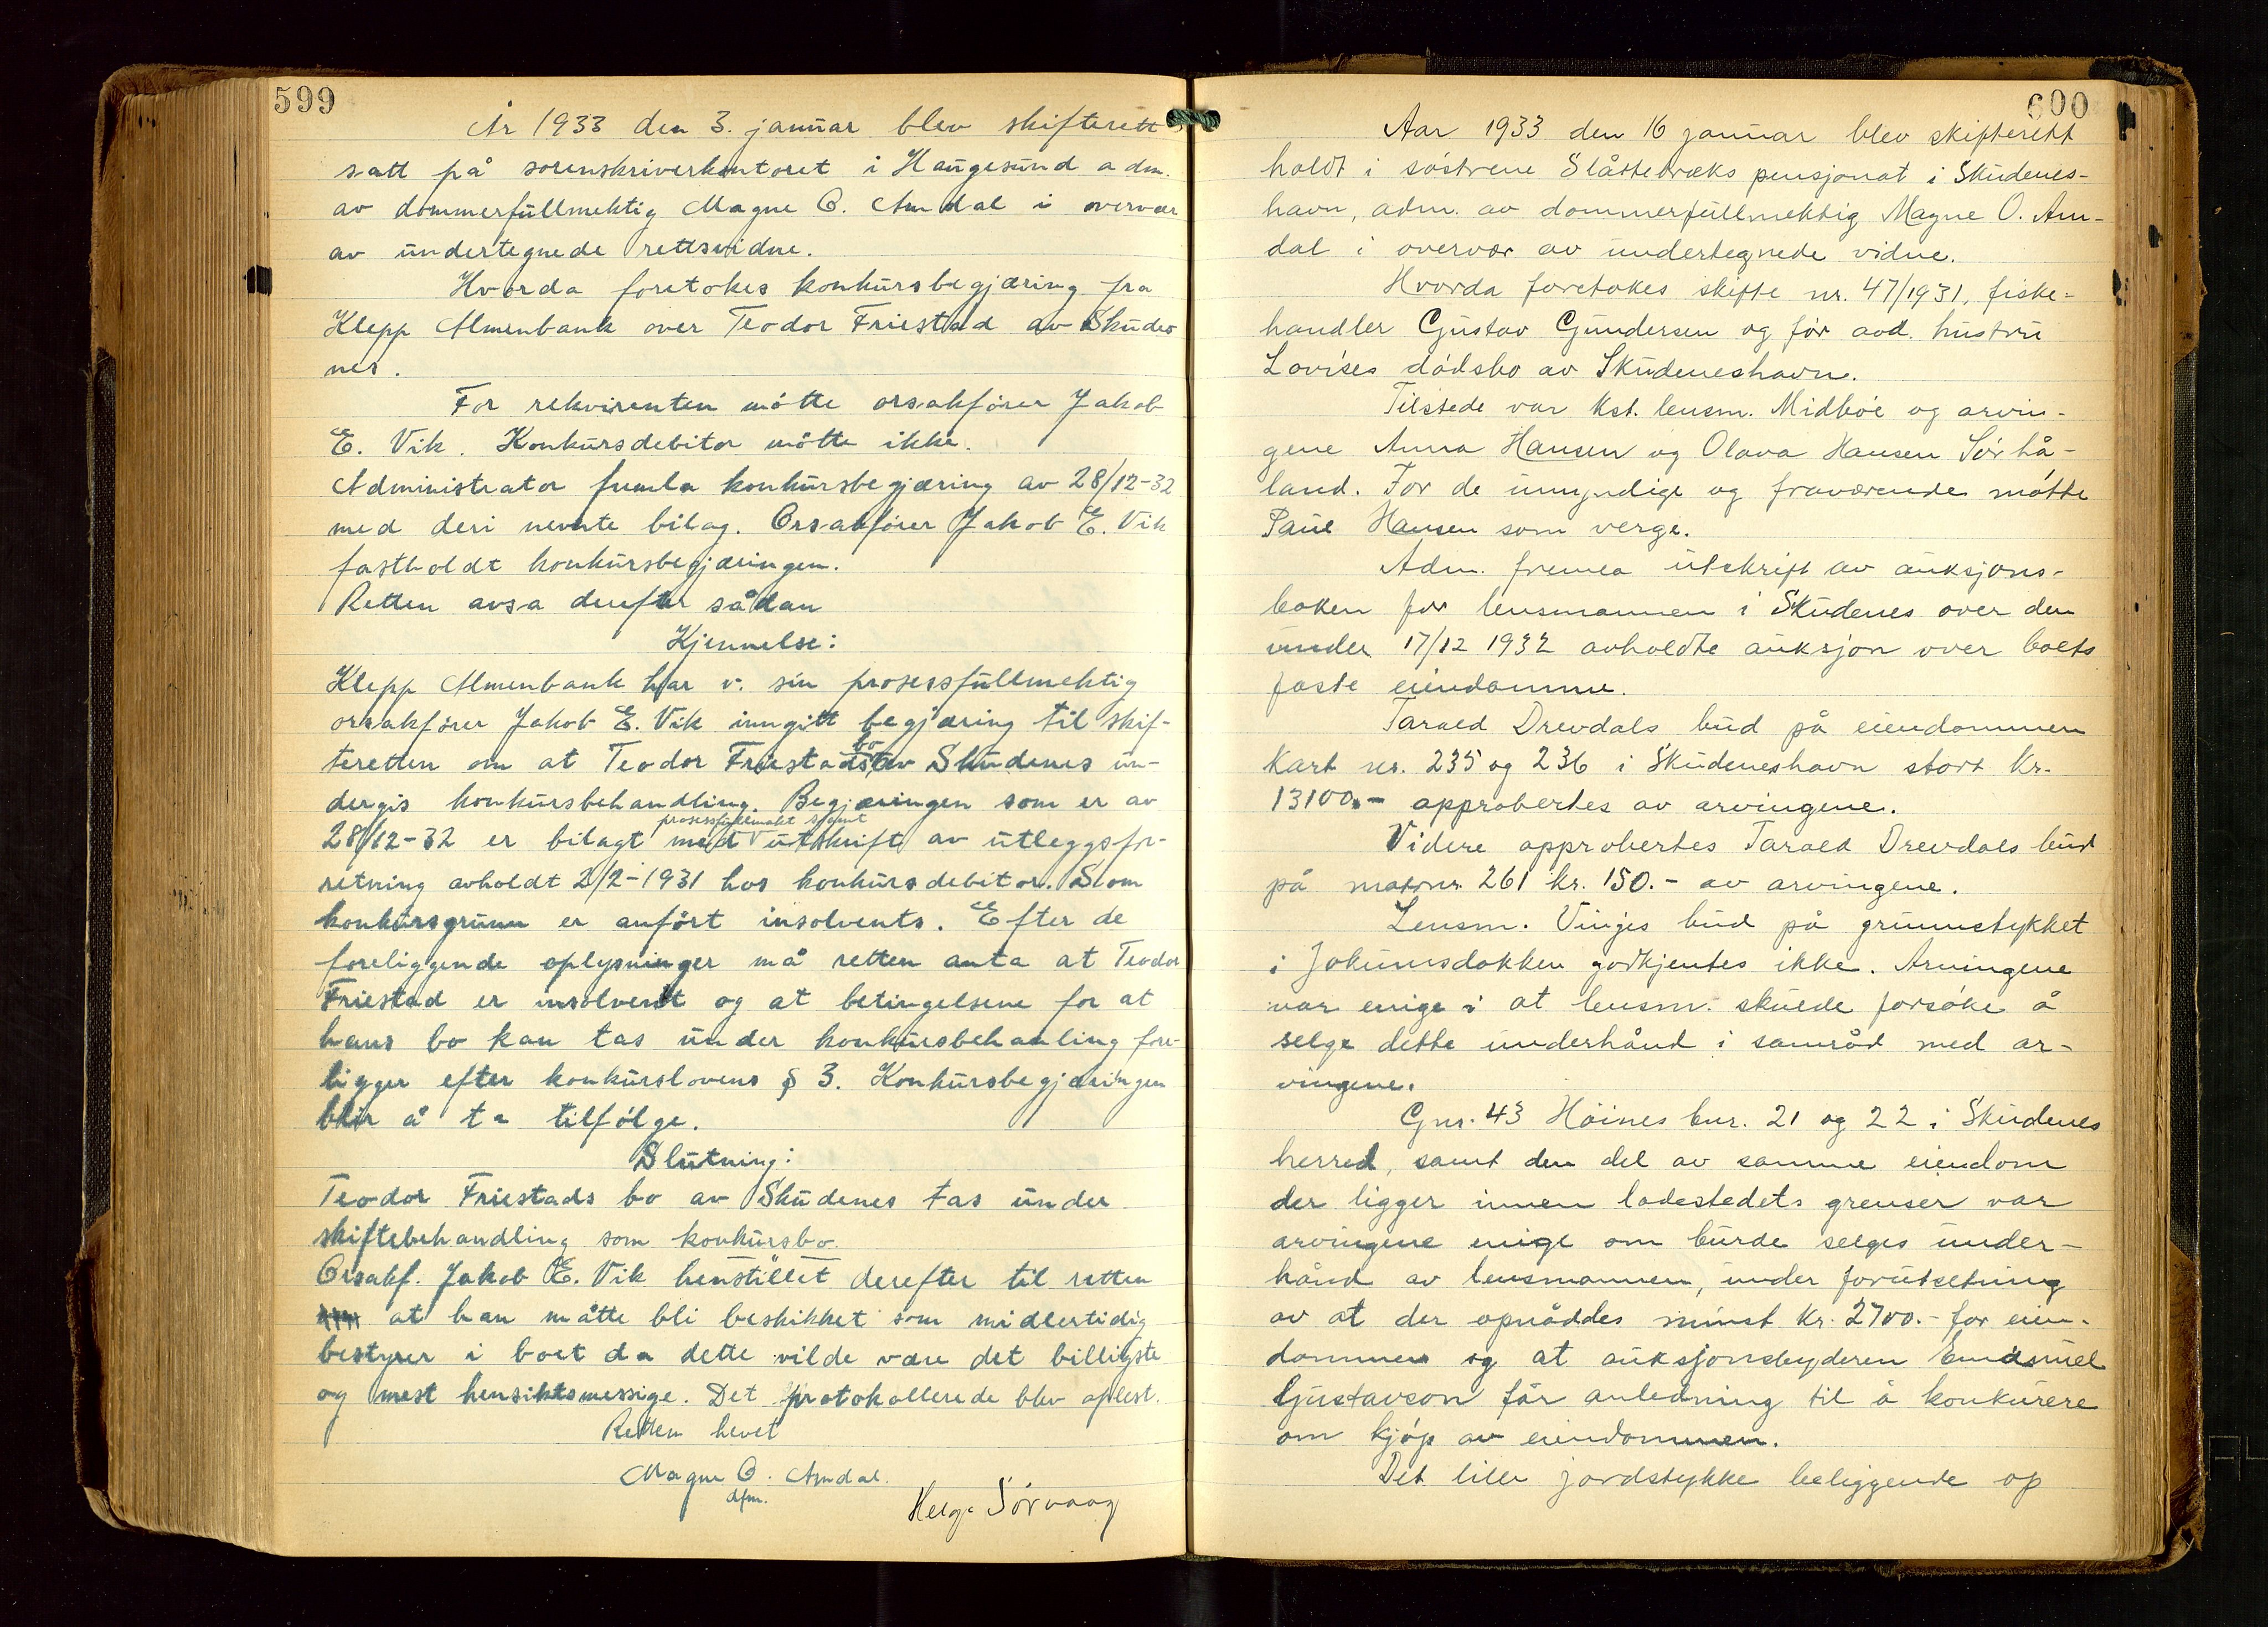 599
År 1933 den 3. januar blev skifterett
satt på sorenskriverkontoret i Haugesund adm.
av dommerfullmektig Magne O. Amdal i overvær
av undertegnede rettsvidne.
Hvorda foretokes konkursbegjæring fra
Klepp Almenbank over Teodor Friestad av Skude
nes.
For rekvirenten møtte orsakfører Jakob
E. Vik. Konkursdebitor møtte ikke.
Administrator fremla konkursbegjæring av 28/12-32
med deri nevnte bilag. Orsakfører Jakob E. Vik
fastholdt konkursbegjæringen.
Retten avsa derefter sådan
Kjennelse:
Klepp Almenbank har v. sin prosessfullmektig
orsakfører Jakob E. Vik inngitt begjæring til skif-
teretten om at Teodor Friestads bo av Skudenes un-
dergis konkursbehandling. Begjæringen som er av
28/12-32 er bilagt med prosessfullmakt samt utskrift av utleggsfor-
retning avholdt 2/2-1931 hos konkursdebitor. Som
konkursgrunn er anført insolvents. Efter de
foreliggende oplysninger må retten anta at Teodor
Friestad er insolvent og at betingelsene for at
hans bo kan tas under konkursbehanling fore-
ligger efter konkurslovens § 3. Konkursbegjæringen
blir å ta tilfølge.
Slutning:
Teodor Friestads bo av Skudenes tas under
skiftebehandling som konkursbo.
Orsakf. Jakob E. Vik henstillet derefter til retten
at han måtte bli beskikket som midlertidig
bestyrer i boet da dette vilde være det billigste
og mest hensiktsmessige. Det protokollerede blev oplest.
Retten hevet
Magne O. Amdal.
dfm.
Helge Sørvaag
600
Aar 1933 den 16 januar blev skifterett
holdt i søstrene Slåttebræks pensjonat i Skudenes-
havn, adm. av dommerfullmektig Magne O. Am-
dal i overvær av undertegnede vidne.
Hvorda foretokes skifte nr. 47/1931, fiske-
handler Gustav Gundersen og før avd. hustru
Lovises dødsbo av Skudeneshavn.
Tilstede var kst. lensm. Midbøe og arvin-
gene Anna Hansen og Olava Hansen Sørhå-
land. For de umyndige og fraværende møtte
Paul Hansen som verge.
Adm. fremla utskrift av auksjons-
boken for lensmannen i Skudenes over den
under 17/12 1932 avholdte auksjon over boets
faste eiendomme.
Tarald Drevdals bud på eiendommen
Kart nr. 235 og 236 i Skudeneshavn stort kr.
13100.- approbertes av arvingene.
Videre approbertes Tarald Drevdals bud
på matrnr. 261 kr. 150.- av arvingene.
Lensm. Vinjes bud på grunnstykket
i Jokumsdokken godkjentes ikke. Arvingene
var enige i at lensm. skulde forsøke å
selge dette underhånd i samråd med ar-
vingene.
Gnr. 43 Høines bnr. 21 og 22 i Skudenes
herred, samt den del av samme eiendom
der ligger innen ladestedets grenser var
arvingene enige om burde selges under-
hånd av lensmannen, under forutsetning
av at der opnåddes minst kr. 2700.- for eien-
dommen og at auksjonsbyderen
Gustavson får anledning til å konkurere
om kjøp av eiendommen.
Det lille jordstykke beliggende op